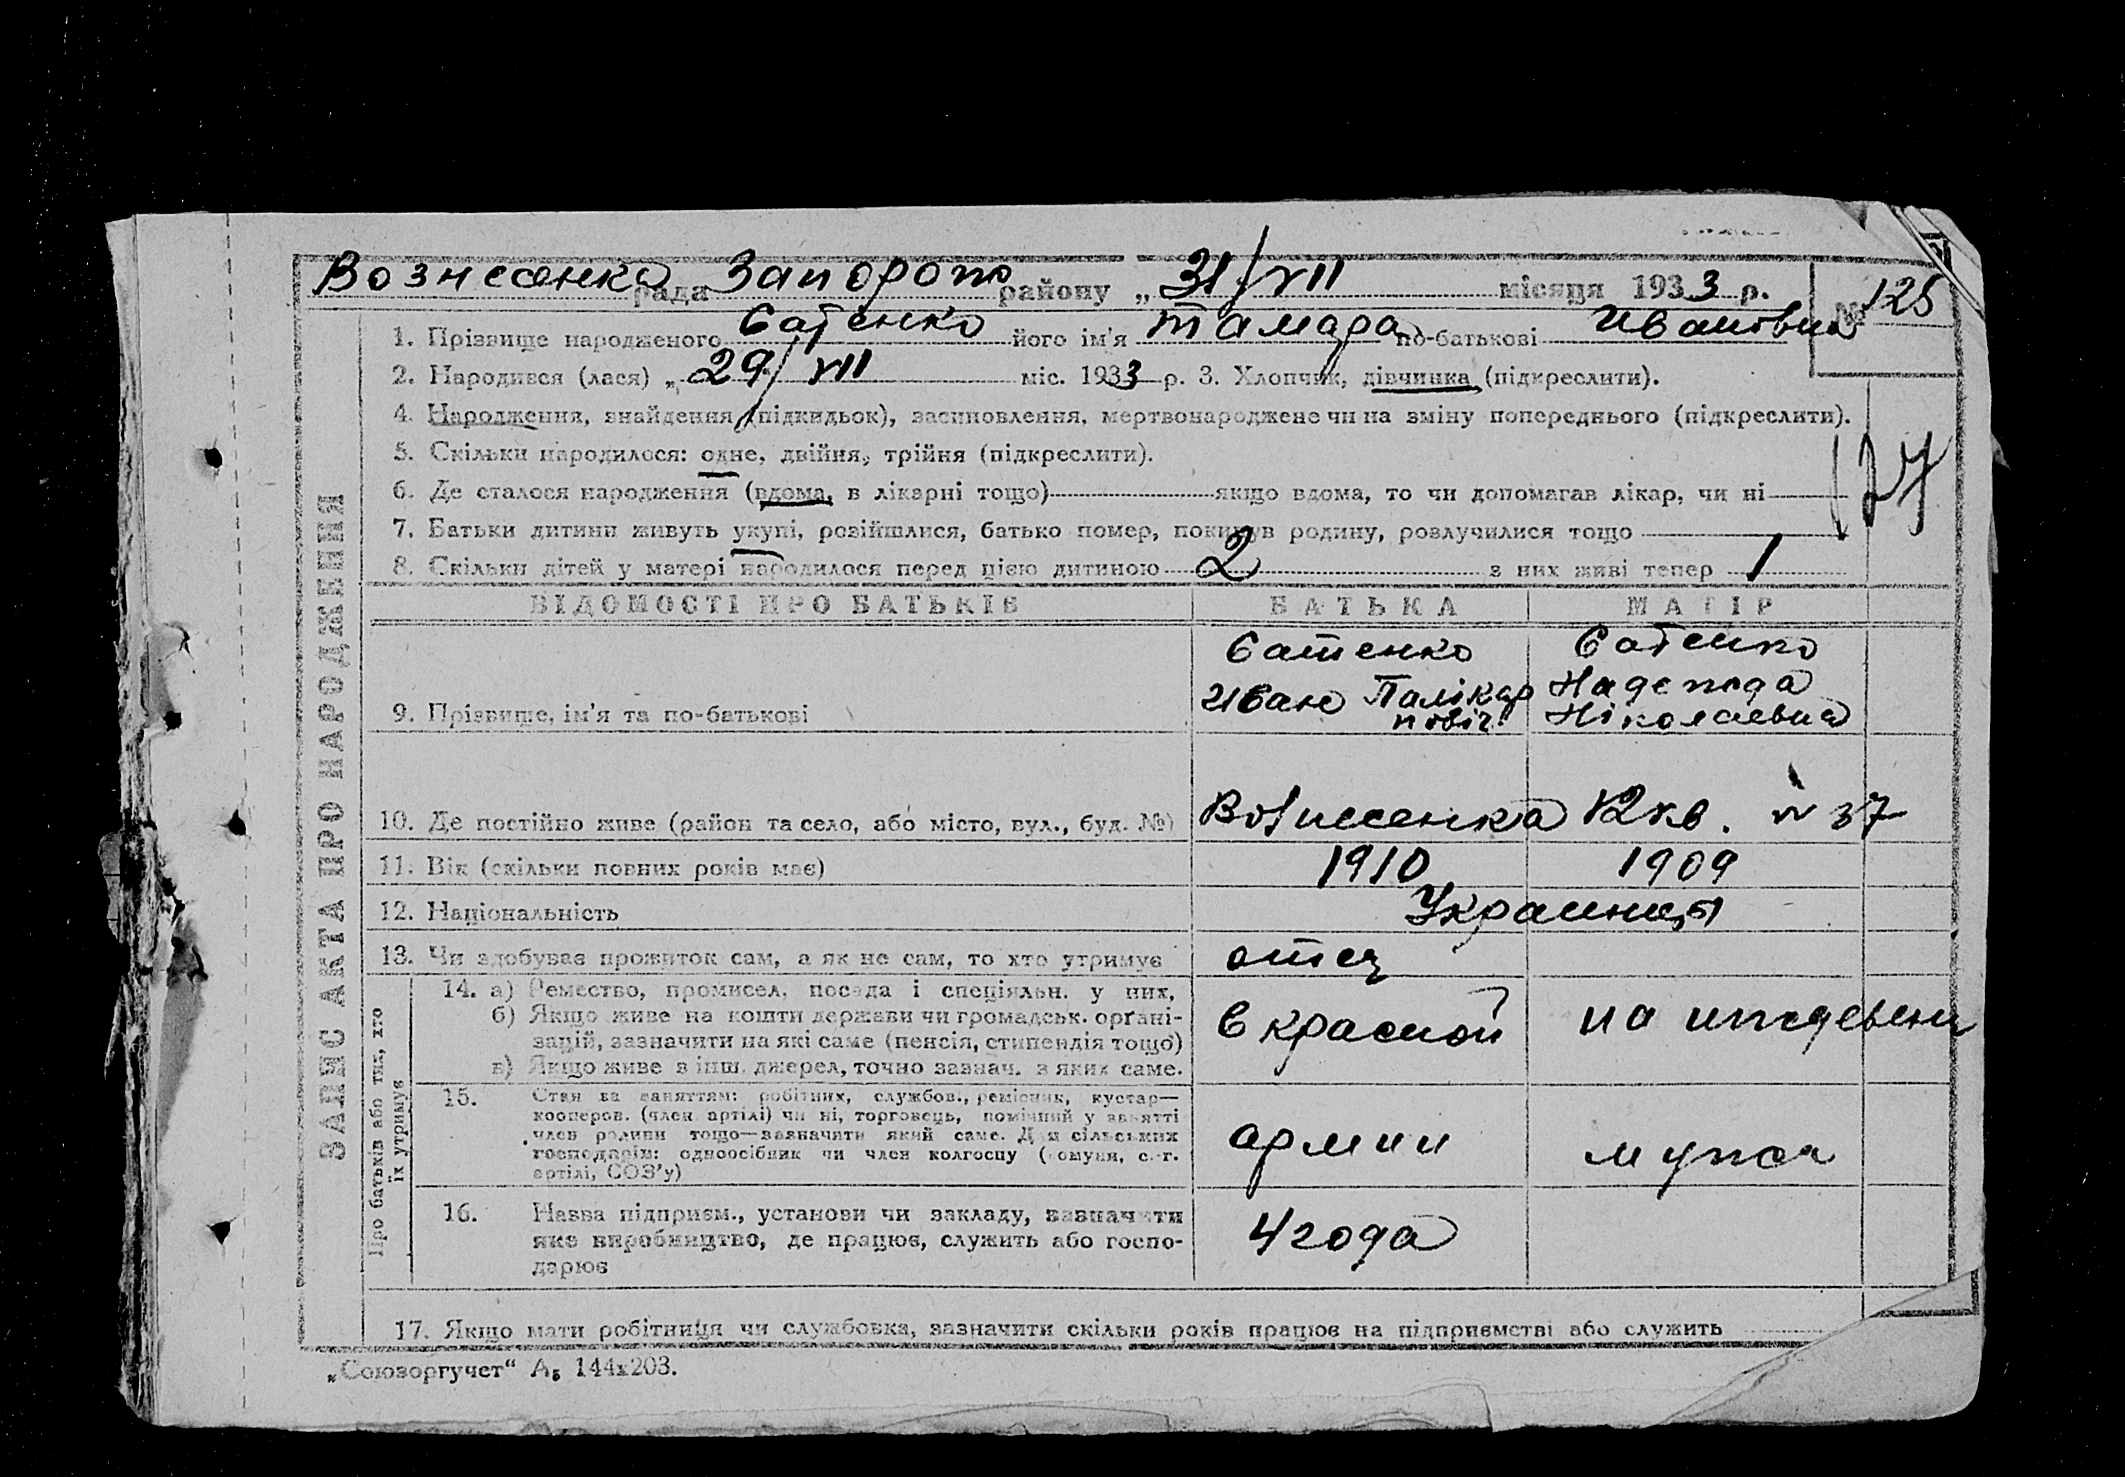 Вознесенка рада Запорож району „31/VII місяця 1933 р. № 125
1. Прізвище народженого Сатенко його ім'я Тамара по-батькові Ивановна
2. Народився (лася) „29/VII міс. 1933 р. 3. Хлопчик, дівчинка (підкреслити).
4. Народження, знайдення (підкидьок), засиновлення, мертвонароджене чи на зміну попереднього (підкреслити).
5. Скільки народилося: одне, двійня, трійня (підкреслити).
127
6. Де сталося народження (вдома, в лікарні тощо) якщо вдома, то чи допомагав лікар, чи ні
7. Батьки дитини живуть укупі, розійшлися, батько помер, покинув родину, розлучилися тощо
8. Скільки дітей у матері народилося перед цією дитиною 2 з них живі тепер 1
ЗАПИС АКТА ПРО НАРОДЖЕННЯ
ВІДОМОСТІ ПРО БАТЬКІВ БАТЬКА МАТІР
9. Прізвище, ім'я та по-батькові
Сатенко
Иван Палікар
повіч
Сатенко
Надежда
Ніколаевна
10. Де постійно живе (район та село, або місто, вул., буд. №) Вознесенка 12 кв. № 37
11. Вік (скільки повних років має) 1910 1909
12. Національність Украинцы
13. Чи здобуває прожиток сам, а як не сам, то хто утримує отец
Про батьків або тих, хто
їх утримує
14. а) Ремество, промисел, посада і спеціяльн. у них,
б) Якщо живе на кошти держави чи громадськ. органі-
зацій, зазначити на які саме (пенсія, стипендія тощо)
в) Якщо живе з інш. джерел, точно зазнач. з яких саме.
в красной
на иждевени
15. Стан за заняттям: робітник, службов., ремісник, кустар—
кооперов. (член артілі) чи ні, торговець, помічний у занятті
член родини тощо—зазначити який саме. Для сільських
господарів: одноосібник чи член колгоспу (комуни, с.-г.
артілі, СОЗ'у)
армии
мужа
16. Назва підприєм., установи чи закладу, зазначити
яке виробництво, де працює, служить або госпо-
дарює
4 года
17. Якщо мати робітниця чи службовка, зазначити скільки років працює на підприємстві або служить
„Союзоргучет“ А₅ 144х203.